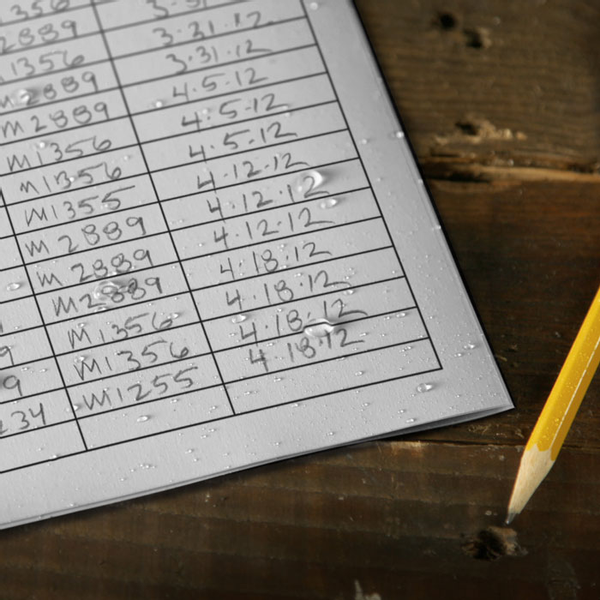 356
2889 3·31
1356 3·31·12
m2889 3·31·12
m2889 4·5·12
m1356 4·5·12
m1356 4·5·12
m1355 4·12·12
m2889 4·12·12
m2889 4·12·12
m2889 4·18·12
9 m1356 4·18·12
9 m1356 4·18·12
234 m1255 4·18·12